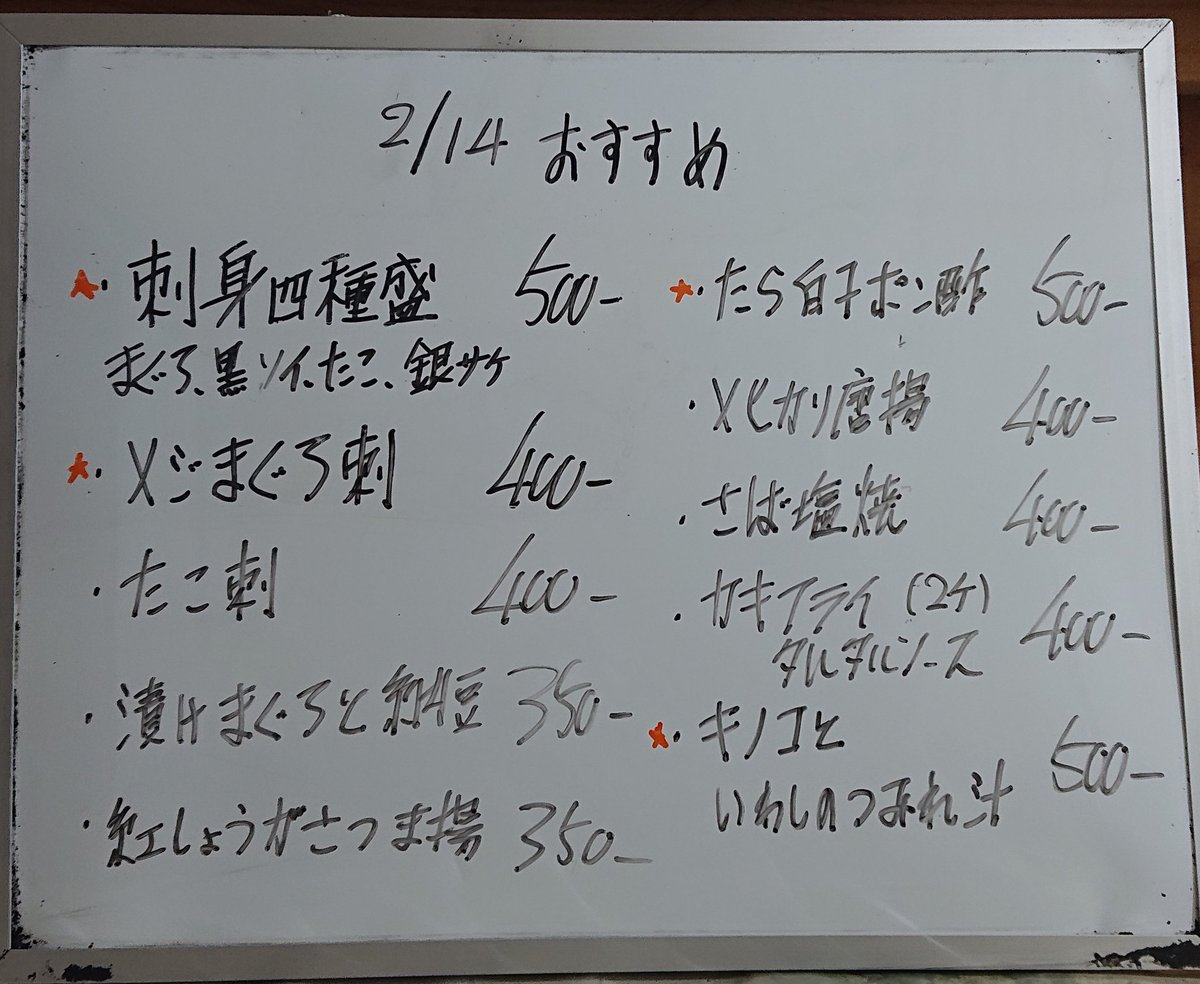 2/14 おすすめ
・刺身四種盛 500-
まぐろ、黒ソイ、たこ、銀サケ
・メジまぐろ刺 400-
・たこ刺 400-
・漬けまぐろと納豆 350-
・紅しょうがさつま揚 350-
・たら白子ポン酢 500-
・メヒカリ唐揚 400-
・さば塩焼 400-
・カキフライ(2ケ) 400-
タルタルソース
・キノコと
いわしのつみれ汁 500-